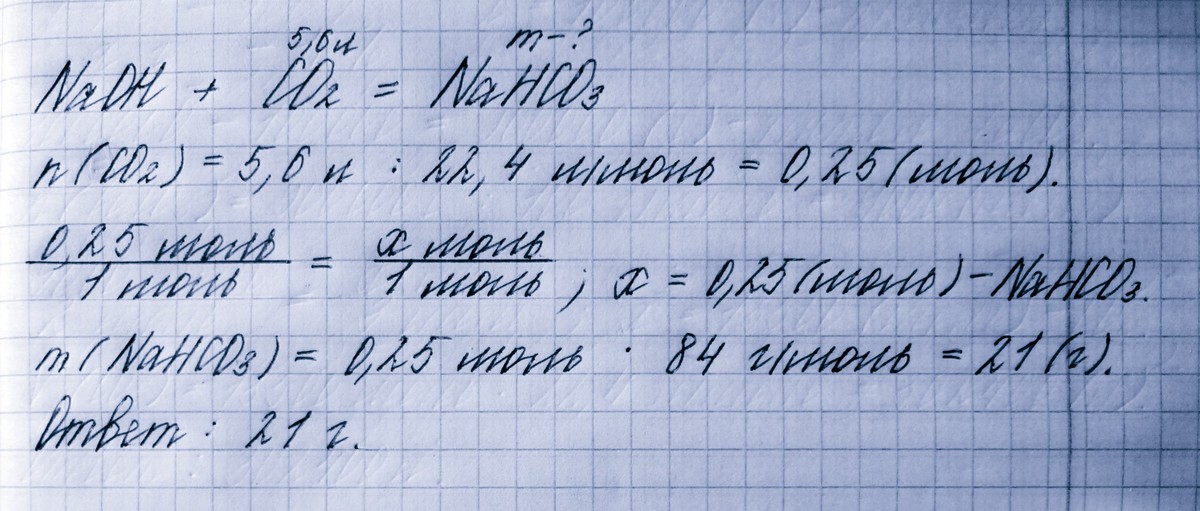 5,6 л m - ?
NaOH + CO₂ = NaHCO₃
n(CO₂) = 5,6 л : 22,4 л/моль = 0,25 (моль).
0,25 моль / 1 моль = x моль / 1 моль ; x = 0,25 (моль) - NaHCO₃.
m(NaHCO₃) = 0,25 моль · 84 г/моль = 21 (г).
Ответ : 21 г.